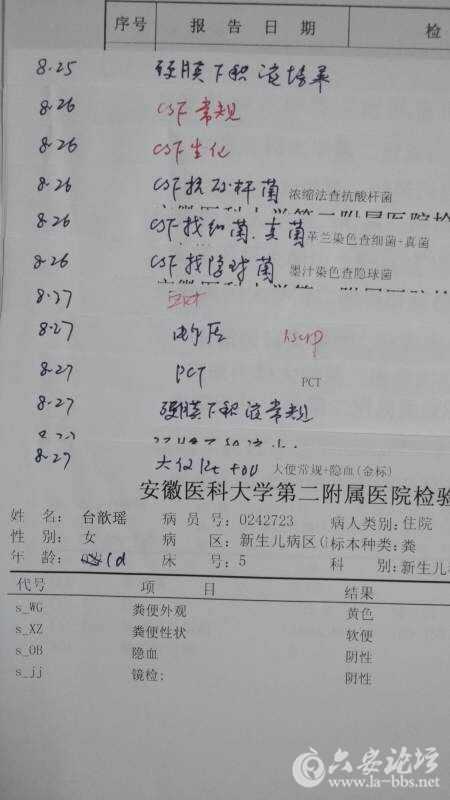 序号 报告日期 检
8.25 硬膜下积液培养
8.26 CSF常规
8.26 CSF生化
8.26 CSF抗酸杆菌 浓缩法查抗酸杆菌
8.26 CSF找细菌.真菌 革兰染色查细菌+真菌
8.26 CSF找隐球菌 墨汁染色查隐球菌
8.27
8.27 hsCRP
8.27 PCT PCT
8.27 硬膜下积液常规
8.27 大便常规+隐血(金标)
安徽医科大学第二附属医院检验
姓 名: 台歆瑶 病 员 号: 0242723 病人类别: 住院
性 别: 女 病 区: 新生儿病区( 标本种类: 粪
年 龄: 1d 床 号: 5 科 别: 新生儿
代号 项 目 结果
s_WG 粪便外观 黄色
s_XZ 粪便性状 软便
s_OB 隐血 阴性
s_jj 镜检: 阴性
六安论坛
www.la-bbs.net